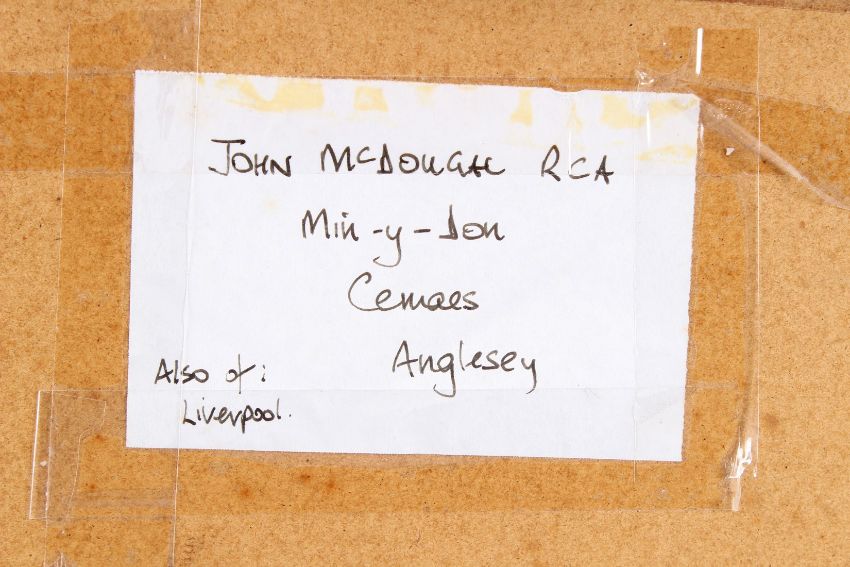 JOHN McDOUGAL RCA
Min-y-don
Cemaes
Anglesey
Also of:
Liverpool.